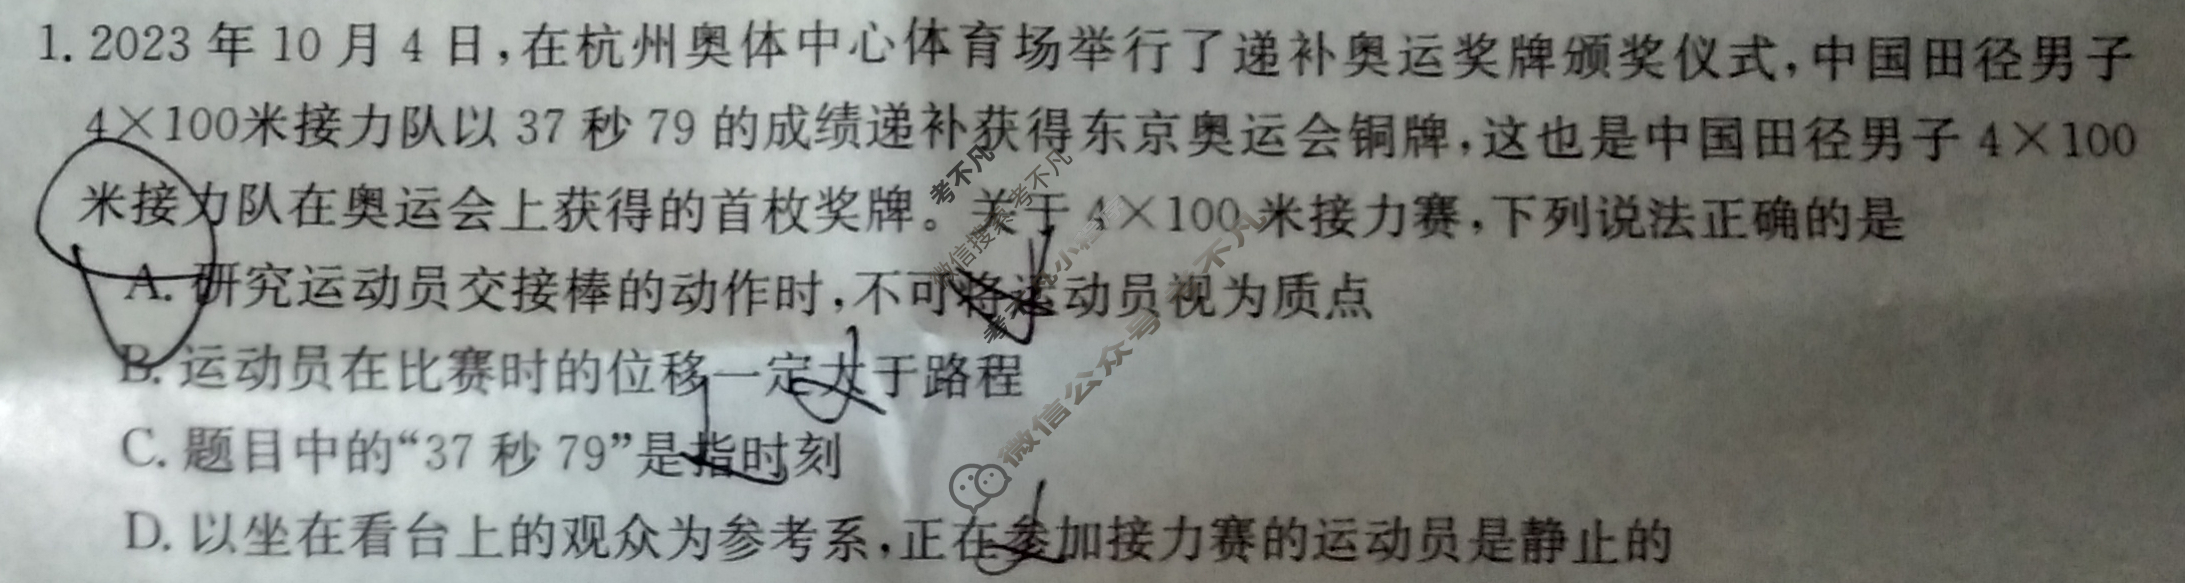 1. 2023 年 10 月 4 日,在杭州奥体中心体育场举行了递补奥运奖牌颁奖仪式,中国田径男子
4×100米接力队以 37 秒 79 的成绩递补获得东京奥运会铜牌,这也是中国田径男子 4×100
米接力队在奥运会上获得的首枚奖牌。关于 4×100 米接力赛,下列说法正确的是
A. 研究运动员交接棒的动作时,不可将运动员视为质点
B. 运动员在比赛时的位移一定大于路程
C. 题目中的“37 秒 79”是指时刻
D. 以坐在看台上的观众为参考系,正在参加接力赛的运动员是静止的
考不凡
微信搜索
考不凡
小程序
微信公众号
不凡